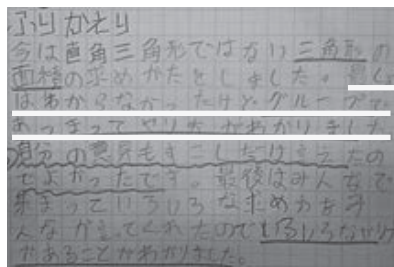 ふりかえり
今は直角三角形ではない三角形の
面積の求めかたをしました。最しょ
はわからなかったけど、グループで
あつまってやりたがわかりました
自分の意見もすこしだけ言えたの
でよかったです。最後はみんなで
集まっていろいろな求め方をみ
んなが言ってくれたのでいろいろなやり
があることがわかりました。